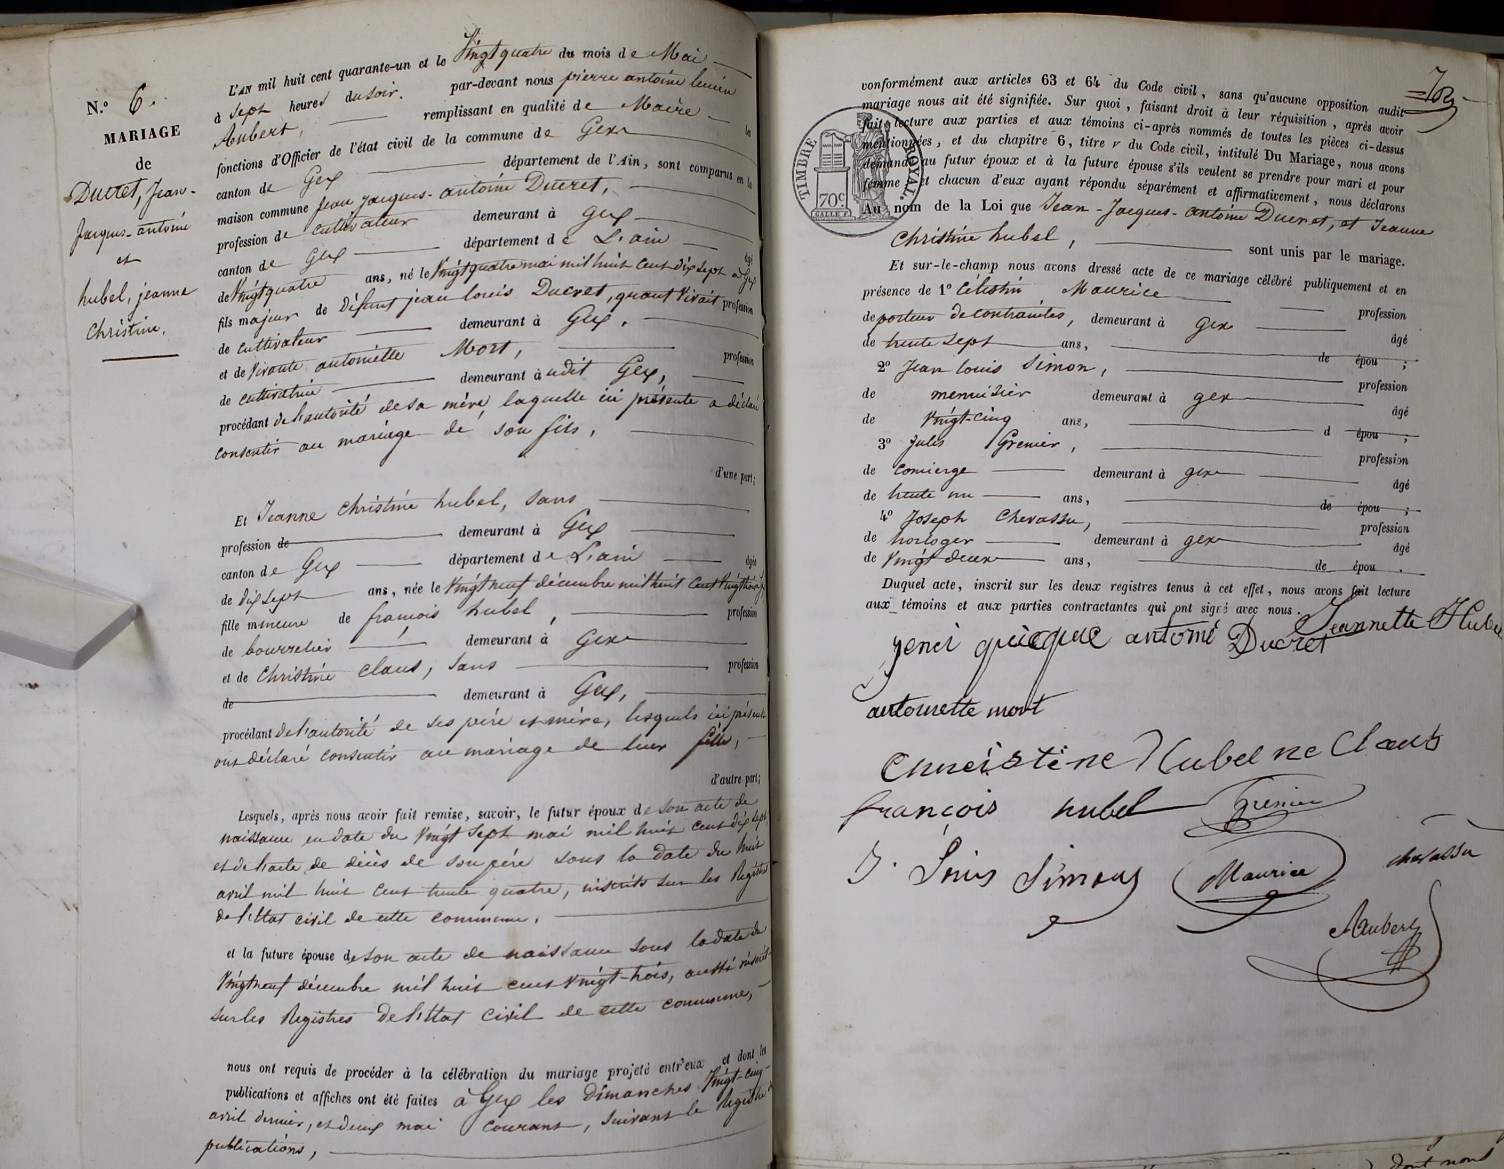 N.º 6.
MARIAGE
de
Ducret, Jean-
Jacques-antoine
et
hubel, jeanne
Christine.
L'AN mil huit cent quarante-un et le Vingt quatre du mois de Mai
à Sept heures du soir. par-devant nous pierre antoine lucien
Aubert, remplissant en qualité de Maire les
fonctions d'Officier de l'état civil de la commune de Gex
canton de Gex département de l'Ain, sont comparus en la
maison commune Jean Jacques-antoine Ducret,
profession de cultivateur demeurant à Gex
canton de Gex département de L'ain âgé
de Vingt quatre ans, né le Vingt quatre mai mil huit cent dix sept à Gex
fils majeur de défunt jean louis Ducret, quant vivait profession
de cultivateur demeurant à Gex.
et de vivante antoinette Mort, profession
de cultivatrice demeurant à udit Gex,
procédant de l'autorité de sa mère, laquelle ici présente a déclaré
consentir au mariage de son fils,
d'une part;
Et Jeanne Christine hubel, sans
profession de demeurant à Gex
canton de Gex département de L'ain âgée
de dix sept ans, née le Vingt neuf décembre mil huit cent Vingt trois à Gex
fille mineure de françois hubel, profession
de bourrelier demeurant à Gex
et de Christine Claus, sans profession
de demeurant à Gex,
procédant de l'autorité de ses père et mère, lesquels ici présents
ont déclaré consentir au mariage de leur fille,
d'autre part;
Lesquels, après nous avoir fait remise, savoir, le futur époux de son acte de
naissance en date du Vingt Sept mai mil huit cent dix sept
et de l'acte de décès de son père sous la date du huit
avril mil huit cent trente quatre, inscrits sur les Registres
de l'Etat civil de cette commune.
et la future épouse de son acte de naissance sous la date du
Vingt neuf décembre mil huit cent vingt-trois, aussi inscrit
sur les Registres de l'Etat civil de cette commune,
nous ont requis de procéder à la célébration du mariage projeté entr'eux et dont les
publications et affiches ont été faites à Gex les dimanches Vingt-cinq
avril dernier, et deux mai courant, suivant le Registre de
publications,
conformément aux articles 63 et 64 du Code civil, sans qu'aucune opposition audit
mariage nous ait été signifiée. Sur quoi, faisant droit à leur réquisition, après avoir
fait lecture aux parties et aux témoins ci-après nommés de toutes les pièces ci-dessus
mentionnées, et du chapitre 6, titre v du Code civil, intitulé Du Mariage, nous avons
demandé au futur époux et à la future épouse s'ils veulent se prendre pour mari et pour
femme et chacun d'eux ayant répondu séparément et affirmativement, nous déclarons
Au nom de la Loi que Jean-Jacques-antoine Ducret, et Jeanne
Christine hubel, sont unis par le mariage.
TIMBRE ROYAL.
70c
Et sur-le-champ nous avons dressé acte de ce mariage célébré publiquement et en
présence de 1º Célestin Maurice profession
de porteur de contraintes, demeurant à gex âgé
de trente sept ans, de épou ;
2º Jean louis Simon, profession
de menuisier demeurant à gex âgé
de Vingt-cinq ans, d épou ;
3º Jules Grenier, profession
de concierge demeurant à gex âgé
de trente un ans, de épou ;
4º Joseph Chevassu, profession
de horloger demeurant à gex âgé
de Vingt deux ans, de épou .
Duquel acte, inscrit sur les deux registres tenus à cet effet, nous avons fait lecture
aux témoins et aux parties contractantes qui ont signé avec nous.
Jeannette Hubel
antoine Ducret
antouette mort
Christine Hubel ne Claus
françois hubel Grenier
J. Louis Simon Maurice chevassu
Aubert